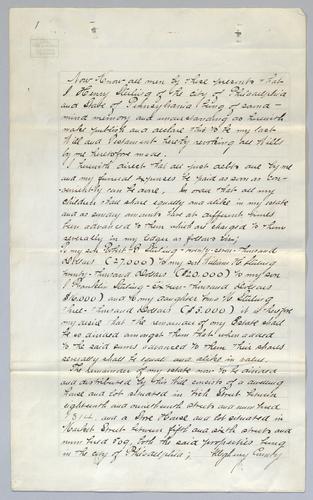 1
Now Know all men by these presents that
I Henry Sterling of the city of Philadelphia
and State of Pennsylvania being of sound
mind memory and understanding do herewith
make publish and declare this to be my last
Will and Testament hereby revoking all Wills
by me heretofore made.
I herewith direct that all just debts due by me
and my funeral expenses be paid as soon as con-
veniently can be done. In order that all my
children shall share equally and alike in my estate
and as sundry amounts have at different times
been advanced to them which are charged to them
severally in my Ledger as follows viz;
To my son Robert Sterling twenty-seven-thousand
dollars (27,000) to my son William H. Sterling
twenty-thousand Dollars ($20,000) to my son
Franklin Sterling sixteen-thousand Dollars
$16,000) and to my daughter H Sterling
three-thousand Dollars ($3,000) it is therefore
my desire that the remainder of my Estate shall
be so divided amongst them that when added
to the said sums advanced to them their shares
severally shall be equal and alike in value.
The remainder of my estate now to be divided
and distributed by this Will consists of a dwelling
house and lot situated in Arch Street between
eighteenth and nineteenth streets and numbered
1314, and a Store House and lot situated in
Market Street between fifth and sixth streets and
numbered 509, both the said properties being
in the city of Philadelphia; Allegheny County